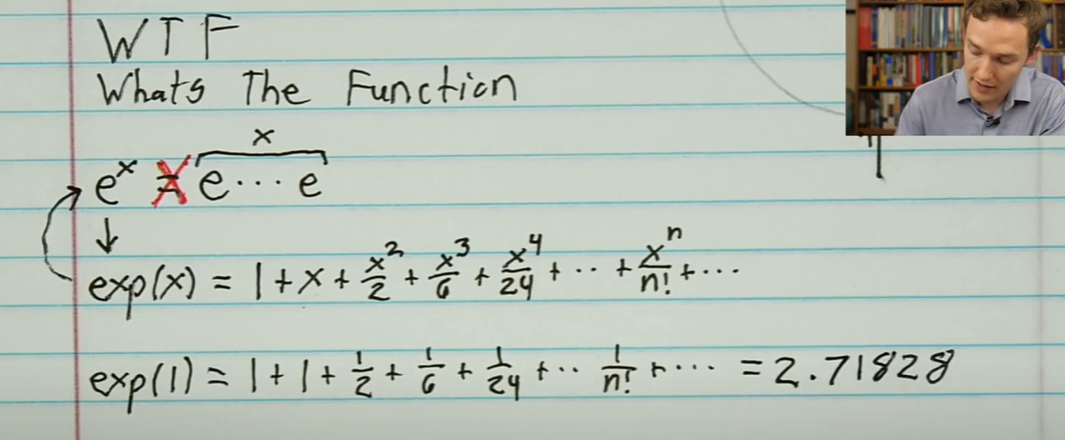 WTF
Whats The Function
x
eˣ = e··· e
exp(x) = 1 + x + x²/2 + x³/6 + x⁴/24 + ·· + xⁿ/n! + ···
exp(1) = 1 + 1 + 1/2 + 1/6 + 1/24 + ·· 1/n! + ··· = 2.71828